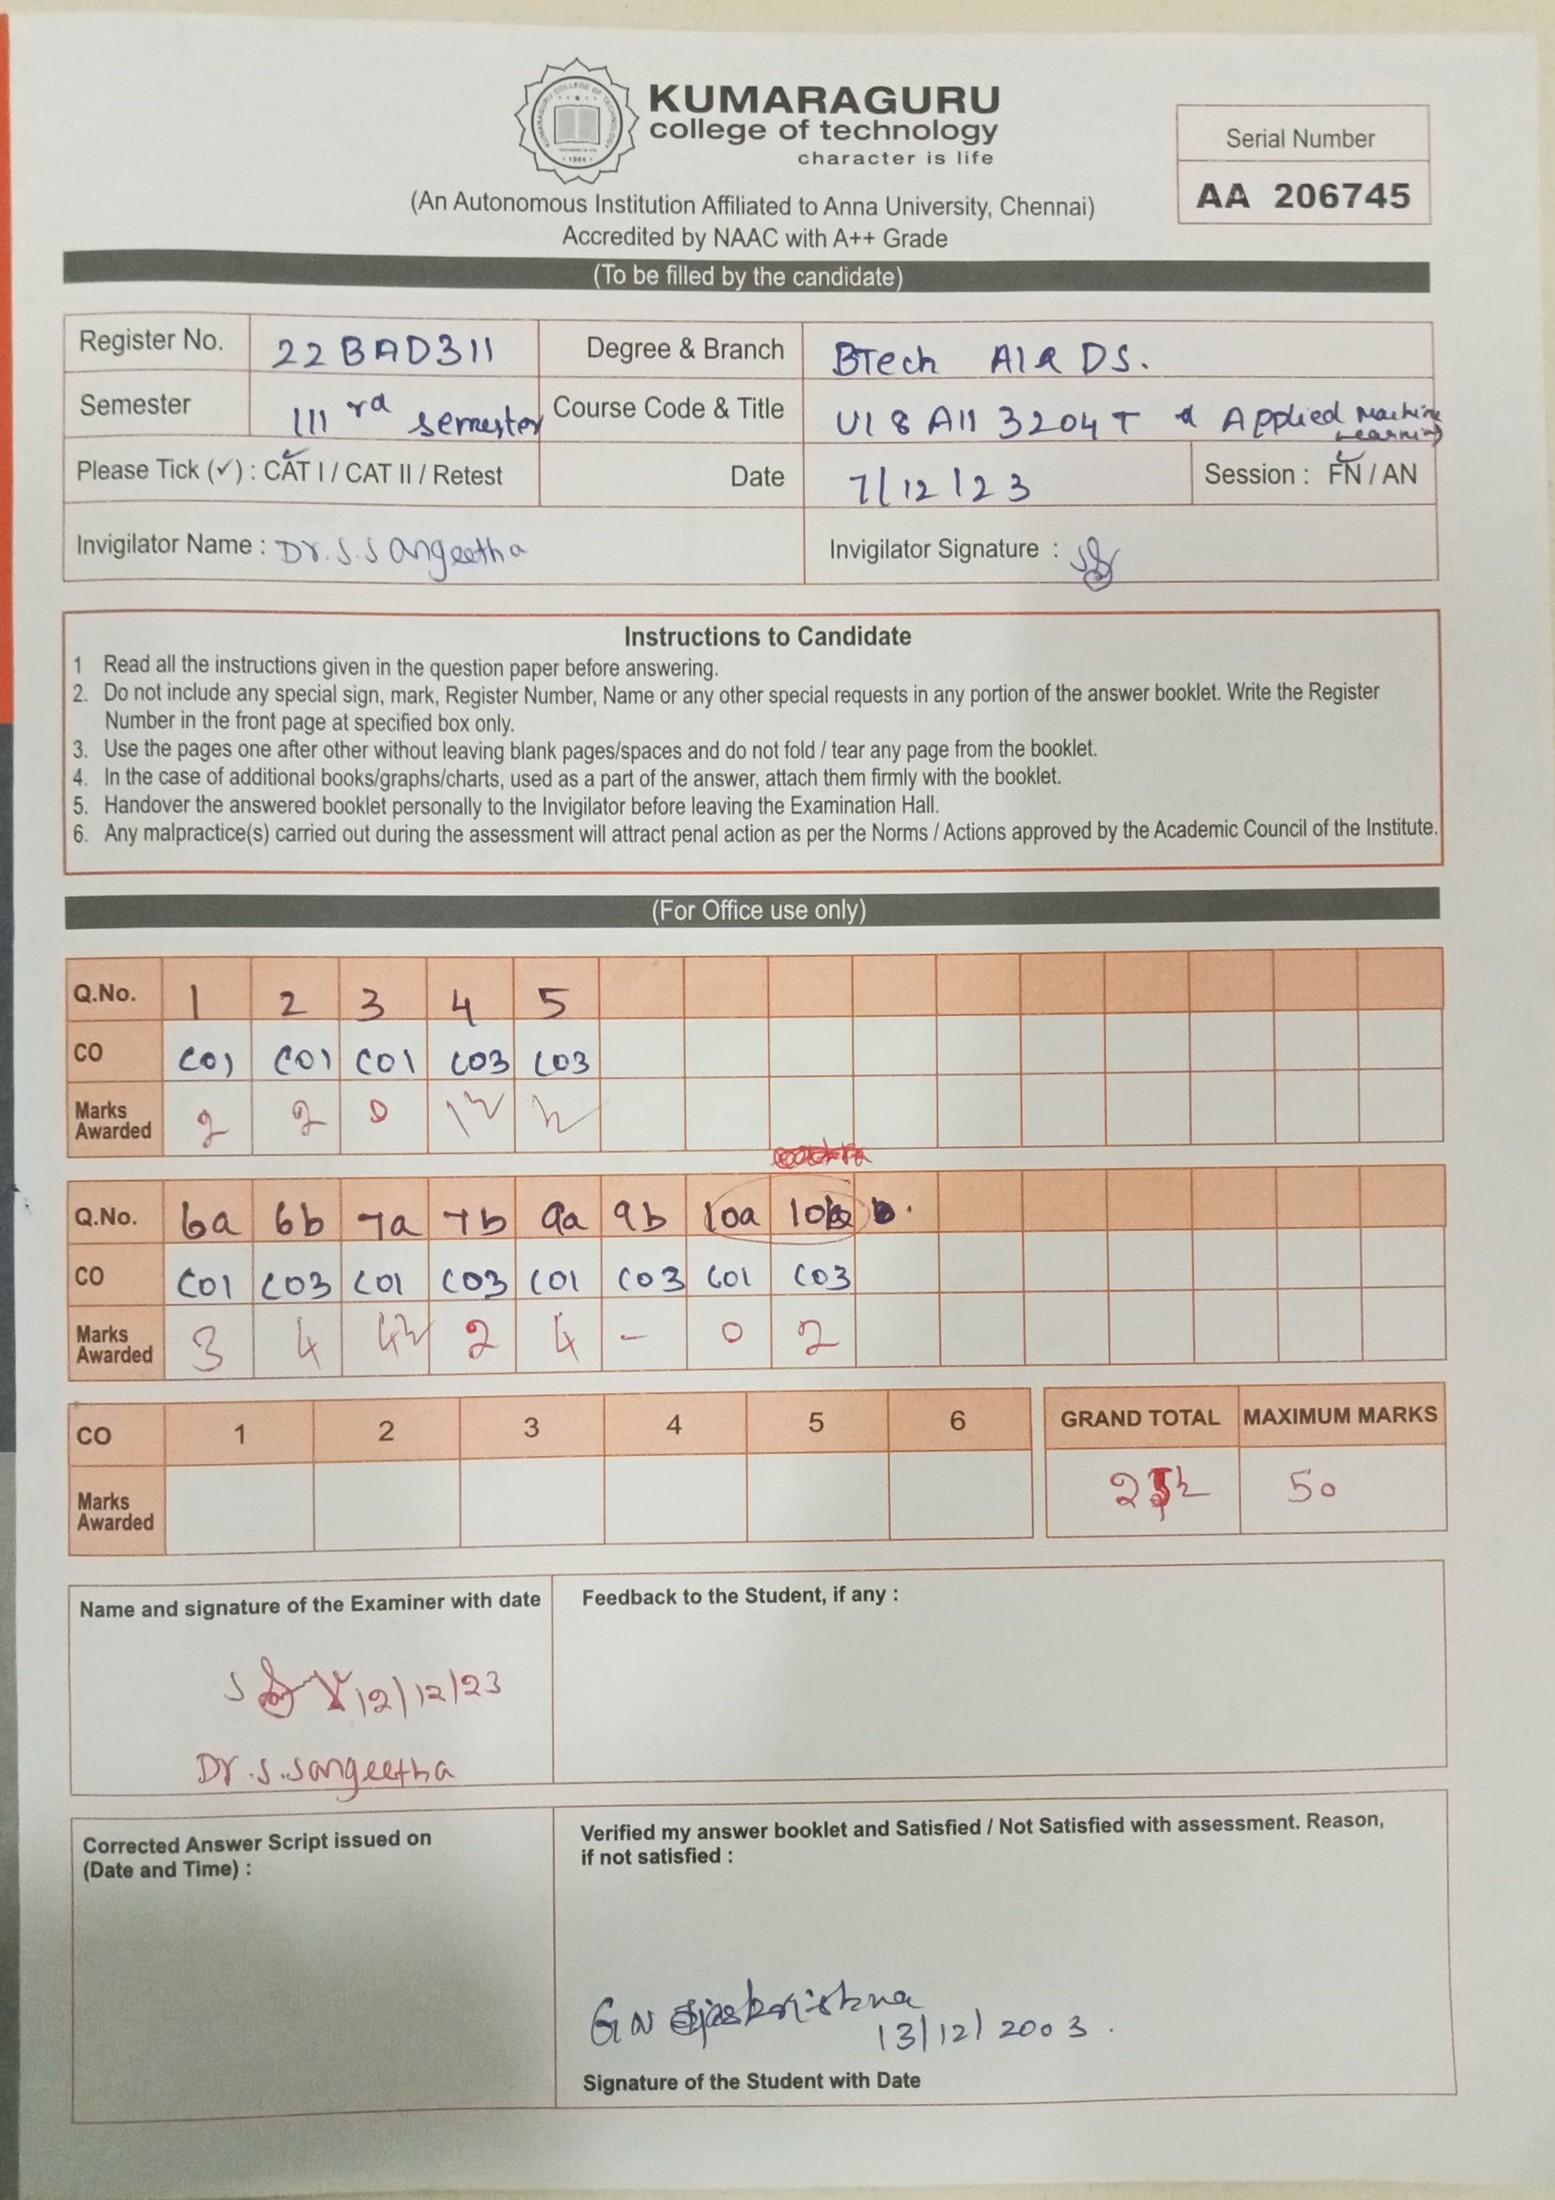 KUMARAGURU
college of technology
character is life
Serial Number
AA 206745
(An Autonomous Institution Affiliated to Anna University, Chennai)
Accredited by NAAC with A++ Grade
(To be filled by the candidate)
Register No. 22BAD311 Degree & Branch BTech AI & DS.
Semester III rd semester Course Code & Title U18AII3204T & Applied Machine Learning
Please Tick (✓) : CAT I / CAT II / Retest Date 7/12/23 Session : FN / AN
Invigilator Name : Dr.S.Sangeetha Invigilator Signature :
Instructions to Candidate
1 Read all the instructions given in the question paper before answering.
2. Do not include any special sign, mark, Register Number, Name or any other special requests in any portion of the answer booklet. Write the Register
Number in the front page at specified box only.
3. Use the pages one after other without leaving blank pages/spaces and do not fold / tear any page from the booklet.
4. In the case of additional books/graphs/charts, used as a part of the answer, attach them firmly with the booklet.
5. Handover the answered booklet personally to the Invigilator before leaving the Examination Hall.
6. Any malpractice(s) carried out during the assessment will attract penal action as per the Norms / Actions approved by the Academic Council of the Institute.
(For Office use only)
Q.No. 1 2 3 4 5
CO CO1 CO1 CO1 CO3 CO3
Marks Awarded 2 2 0 1½ ½
Q.No. 6a 6b 7a 7b 9a 9b 10a 10b
CO CO1 CO3 CO1 CO3 CO1 CO3 CO1 CO3
Marks Awarded 3 4 4½ 2 4 - 0 2
CO 1 2 3 4 5 6 GRAND TOTAL MAXIMUM MARKS
Marks Awarded 50
Name and signature of the Examiner with date
Feedback to the Student, if any :
12/12/23
Dr.S.Sangeetha
Corrected Answer Script issued on
(Date and Time) :
Verified my answer booklet and Satisfied / Not Satisfied with assessment. Reason,
if not satisfied :
G N
13/12/2003.
Signature of the Student with Date